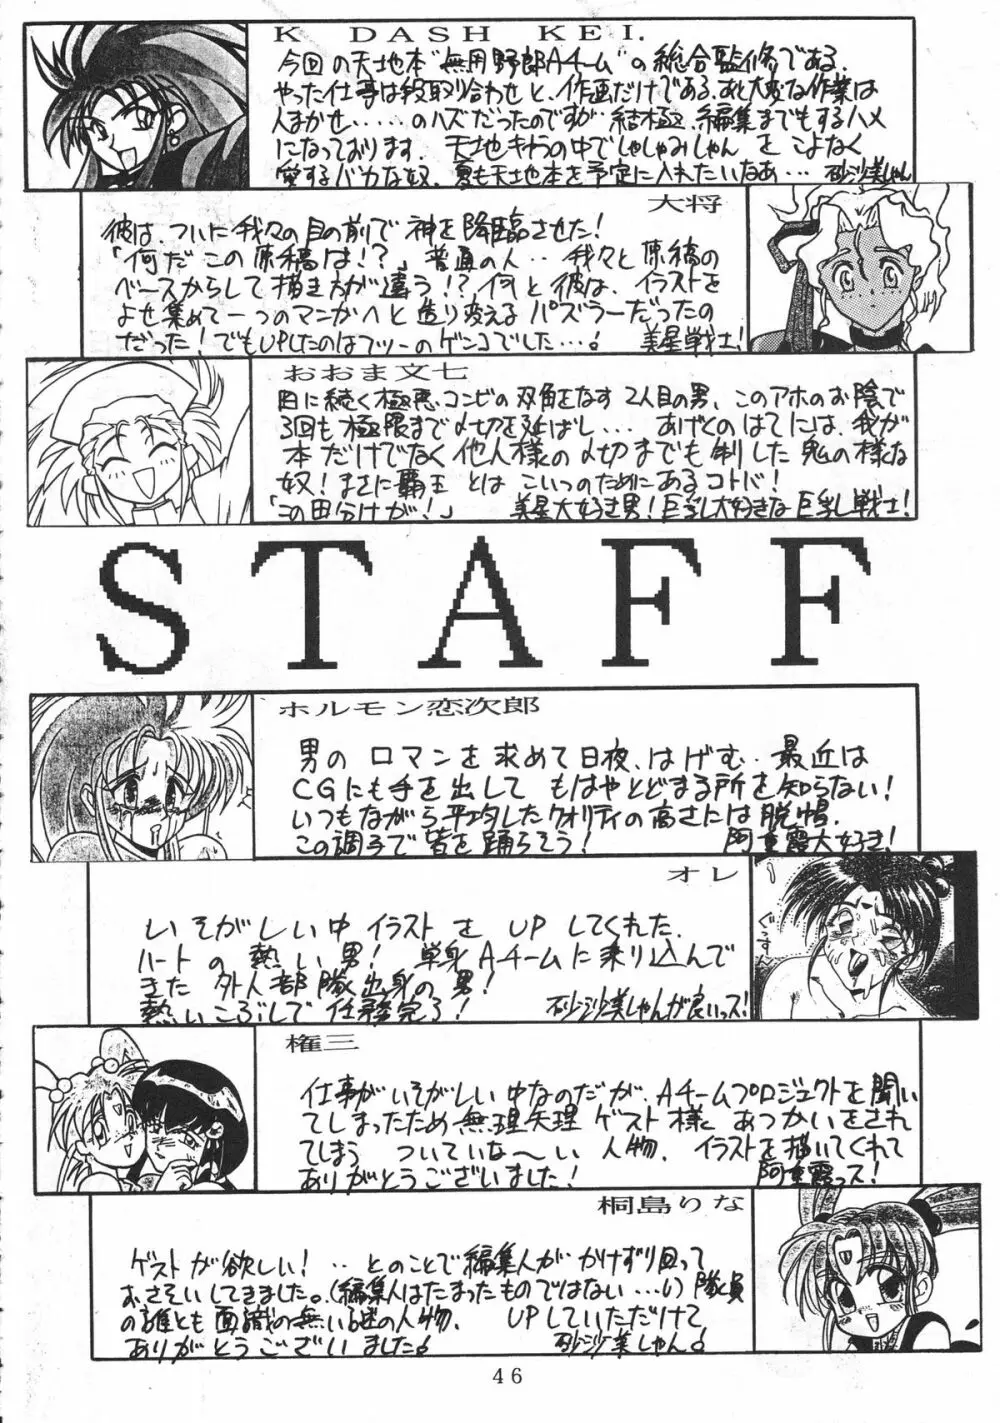 K DASH KEI.
今回の天地本"無用野郎Aチーム"の総合監修である.
やった仕事は段取り合わせと、作画だけである.あと大変な作業は
人まかせ.....のハズだったのですが、結極、編集までもするハメ
になっております. 天地キャラの中でしゃしゃみしゃん をこよなく
愛するバカな奴.夏も天地本を予定に入れたいなあ... 砂沙美しゃん
大将
彼は、ついに我々の目の前で神を降臨させた!
「何だこの原稿は!?」普通の人..我々と原稿の
ベースからして描き方が違う!?何と彼は、イラストを
よせ集めて一つのマンガへと造り変える パズラーだったの
だった!でもUPしたのはフツーのゲンコでした...。 美星戦士!
おおま文七
目に続く極悪コンビの双角をなす2人目の男、このアホのお陰で
3回も極限まで〆切を延ばし... あげくのはてには、我が
本だけでなく他人様の〆切までも制した鬼の様な
奴!まさに覇王とはこいつのためにあるコトバ!
「この田分けが!」 美星大好き男!巨乳大好きな巨乳戦士!
STAFF
ホルモン恋次郎
男のロマンを求めて日夜、はげむ..最近は
CGにも手を出して もはやとどまる所を知らない!
いつもながら平均したクオリティの高さには脱帽.
この調子で皆を踊らそう! 阿重霞大好き!
オレ
いそがしい中イラストをUPしてくれた.
ハートの熱い男! 単身Aチームに乗り込んで
きた 外人部隊出身の男!
熱いこぶしで任務完了! 砂沙美しゃんが良いっス!
ぐっすん
権三
仕事がいそがしい中なのだが、Aチームプロジェクトを聞い
てしまったため無理矢理ゲスト様にあつかいをされ
てしまう ついていな〜い人物. イラストを描いてくれて
ありがとうございました! 阿重霞っス!
桐島りな
ゲストが欲しい!..とのことで編集人がかけずり回って
おさそいしてきました。(編集人はたまったものではない...い)隊員
の誰とも面識の無い謎の人物. UPしていただけて
ありがとうございました。 砂沙美しゃん。
46